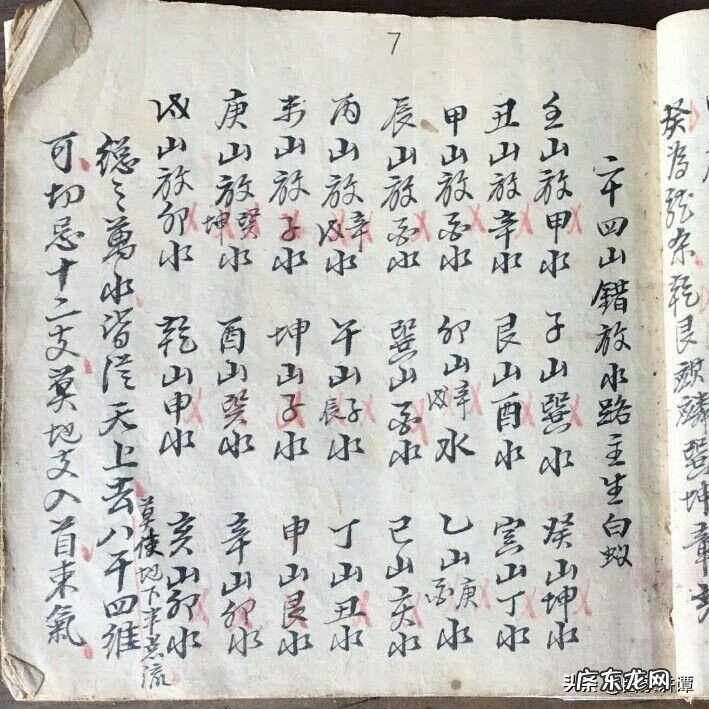 7
二十四山錯放水路主生白蚁
壬山放甲水 子山巽水 癸山坤水
丑山放辛水 艮山酉水 寅山丁水
甲山放水 卯山辛戌水 乙山庚水
辰山放水 巽山水 巳山亥水
丙山放辛戌水 午山子辰水 丁山丑水
未山放子水 坤山子水 申山艮水
庚山放癸坤水 酉山癸水 辛山卯水
戌山放卯水 乾山申水 亥山卯水
總之萬水皆從天上去八干四維
莫使地下半點流
可切忌十二支莫地支入首来氣
乾艮麒麟巽坤
头条
谭
广东龙网